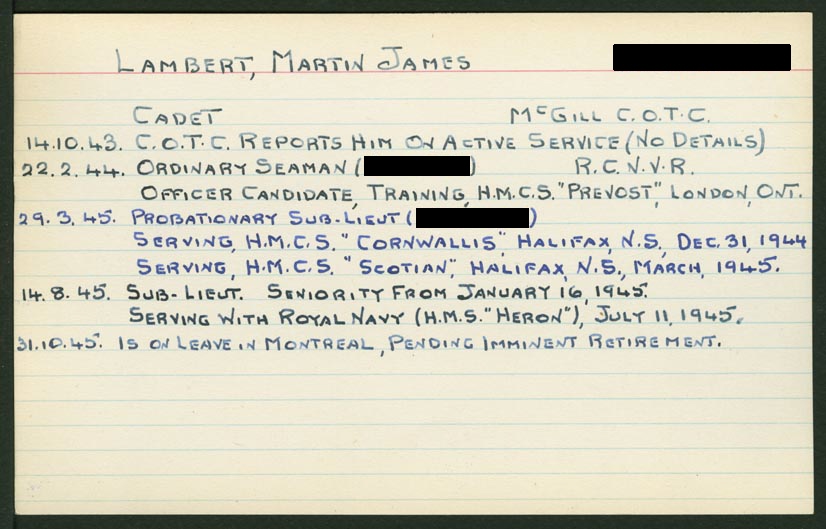 LAMBERT, MARTIN JAMES
CADET McGILL C.O.T.C.
14.10.43. C.O.T.C. REPORTS HIM ON ACTIVE SERVICE (NO DETAILS)
22.2.44. ORDINARY SEAMAN ( ) R.C.N.V.R.
OFFICER CANDIDATE, TRAINING, H.M.C.S. "PREVOST", LONDON, ONT.
29.3.45. PROBATIONARY SUB-LIEUT ( )
SERVING, H.M.C.S. "CORNWALLIS" HALIFAX, N.S., DEC. 31, 1944
SERVING, H.M.C.S. "SCOTIAN", HALIFAX, N.S., MARCH, 1945.
14.8.45. SUB-LIEUT. SENIORITY FROM JANUARY 16, 1945.
SERVING WITH ROYAL NAVY (H.M.S. "HERON"), JULY 11, 1945.
31.10.45. IS ON LEAVE IN MONTREAL, PENDING IMMINENT RETIREMENT.